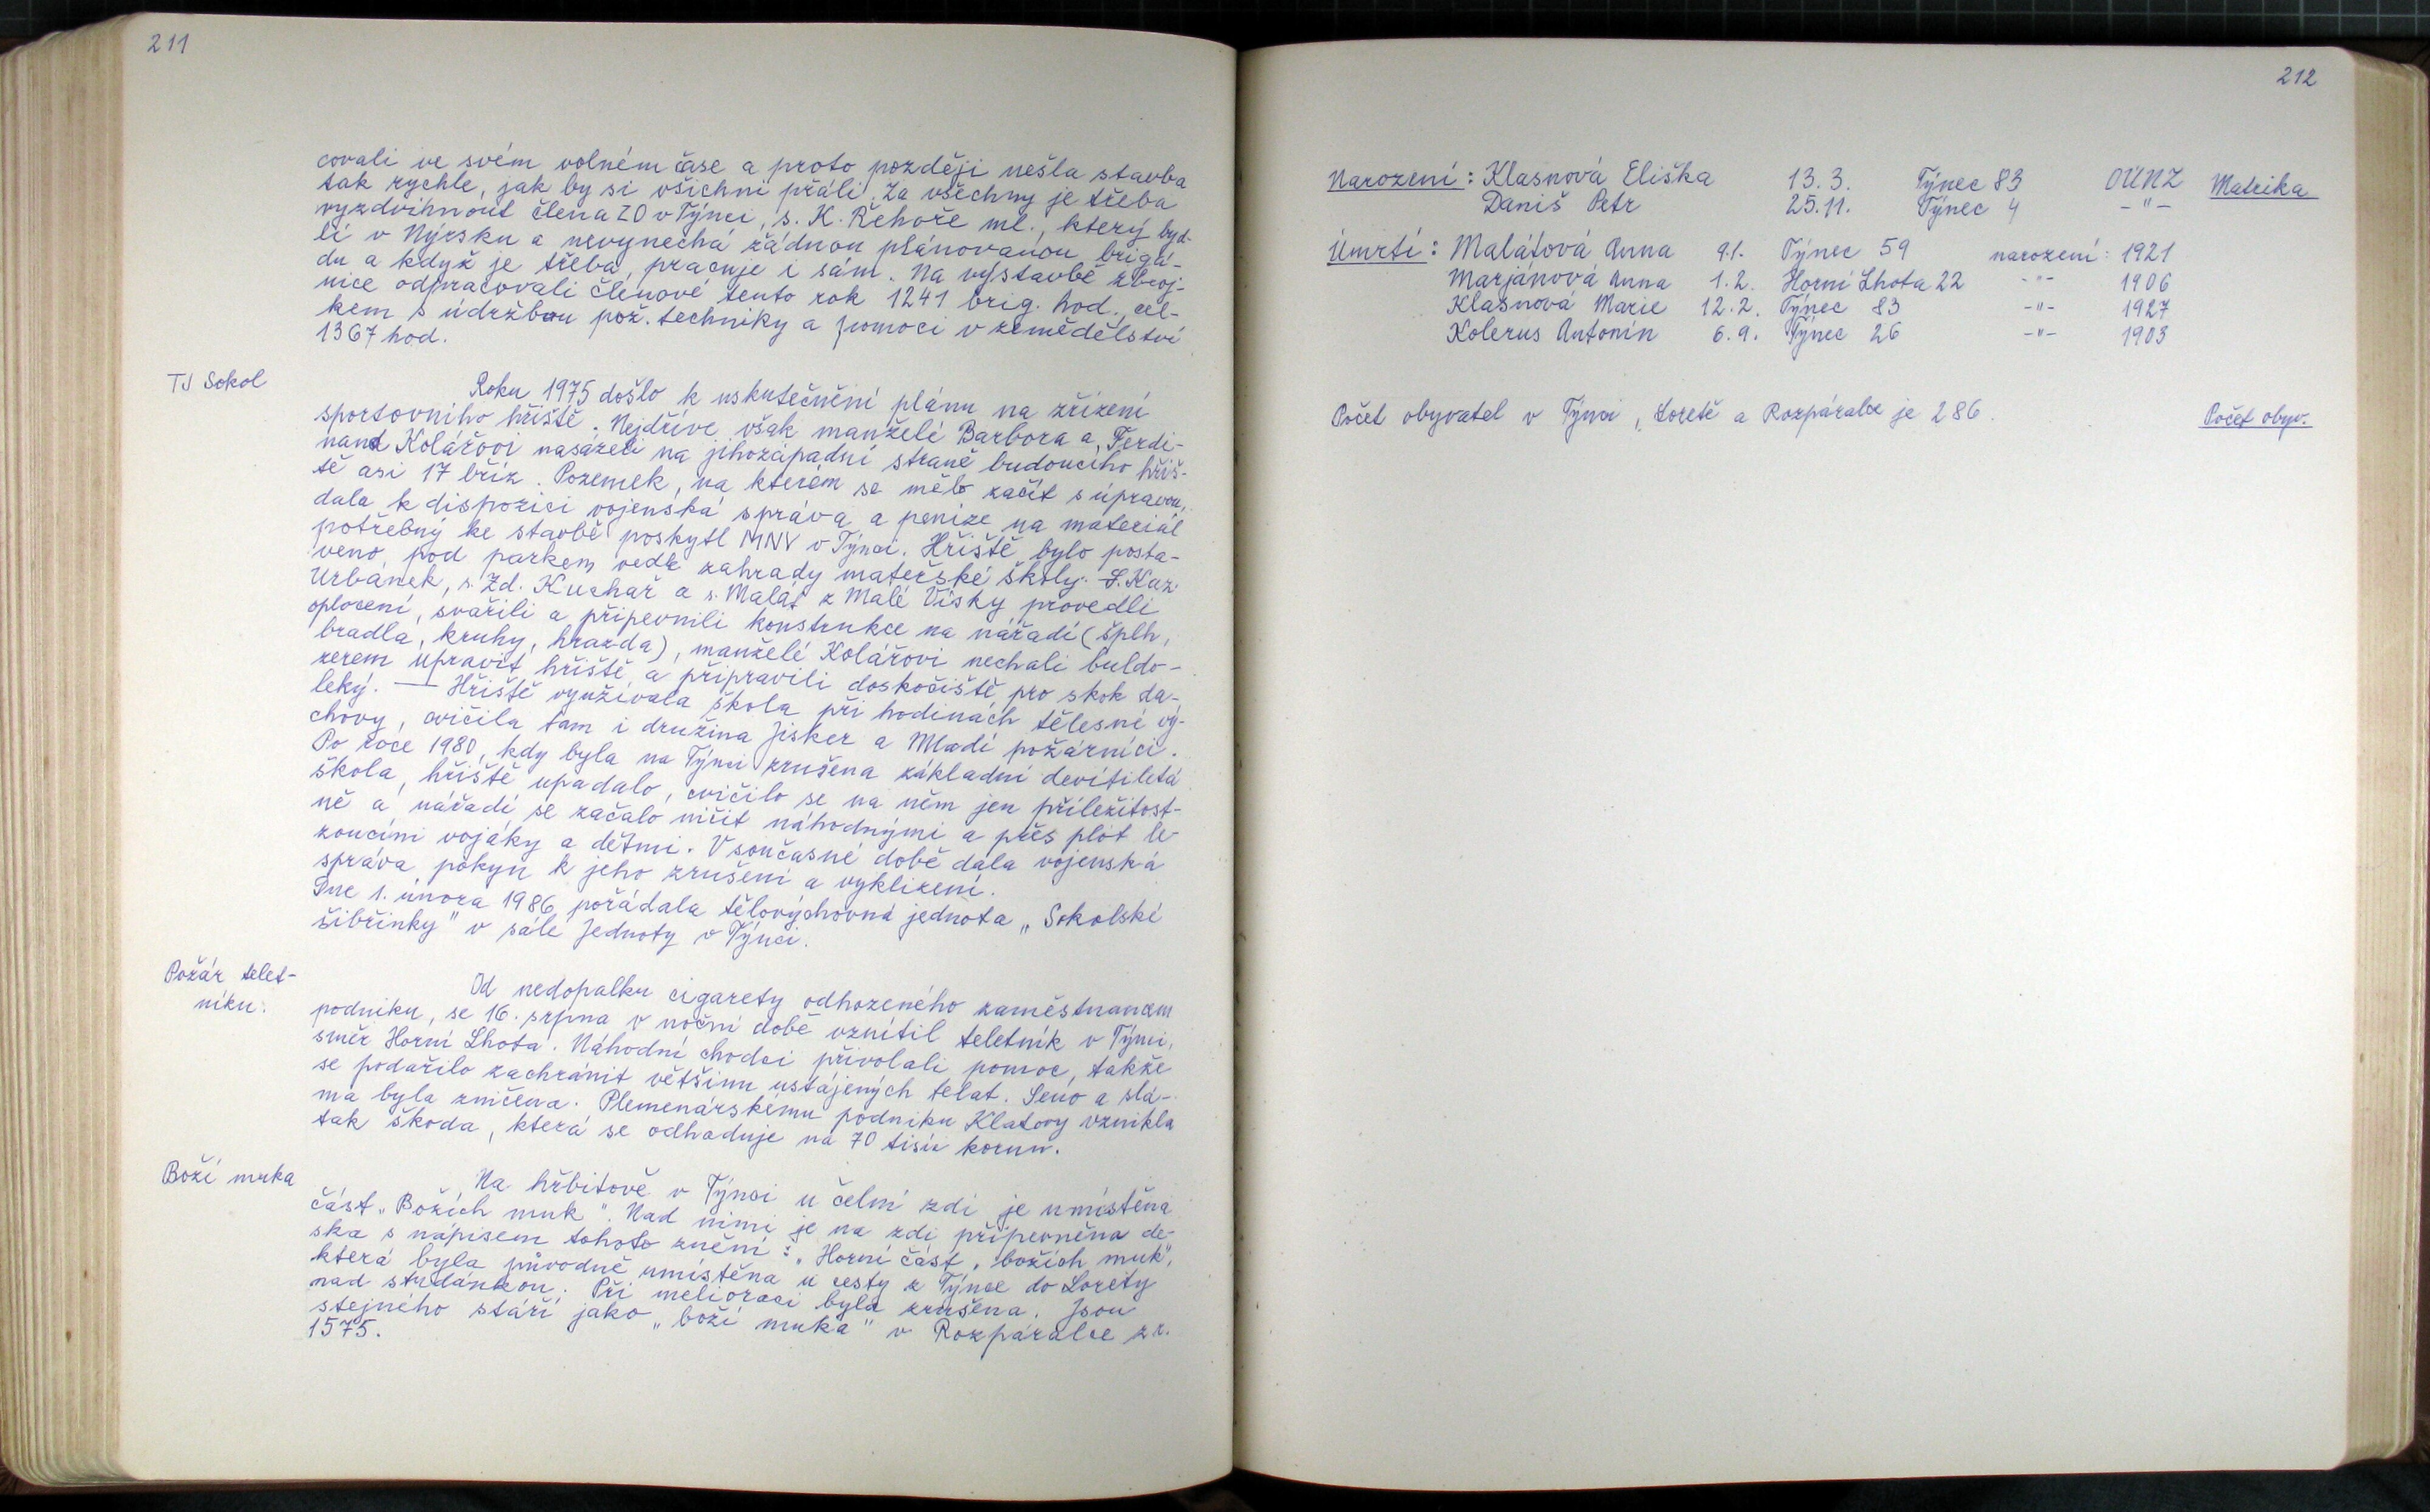 211
covali ve svém volném čase a proto později nešla stavba
tak rychle, jak by si všichni přáli. Za všechny je třeba
vyzdvihnout člena ZO v Týnci, s. K. Řehoře ml., který byd-
lí v Nýrsku a nevynechá žádnou plánovanou brigá-
du a když je třeba, pracuje i sám. Na výstavbě zbroj-
nice odpracovali členové tento rok 1241 brig. hod., cel-
kem s údržbou pož. techniky a pomoci v zemědělství
1367 hod.
TJ Sokol
Roku 1975 došlo k uskutečnění plánu na zřízení
sportovního hřiště. Nejdříve však manželé Barbora a Ferdi-
nand Kolářovi nasázeli na jihozápadní straně budoucího hřiš-
tě asi 17 bříz. Pozemek, na kterém se mělo začít s úpravou,
dala k dispozici vojenská správa a peníze na materiál
potřebný ke stavbě poskytl MNV v Týnci. Hřiště bylo posta-
veno pod parkem vedle zahrady mateřské školy. S. Kaz.
Urbánek, s. Zd. Kuchař a s. Malát z Malé Vísky provedli
oplocení, svařili a připevnili konstrukce na nářadí (šplh,
bradla, kruhy, hrazda), manželé Kolářovi nechali buldo-
zerem upravit hřiště a připravili doskočiště pro skok da-
leký. — Hřiště využívala škola při hodinách tělesné vý-
chovy, cvičila tam i družina Jisker a Mladí požárníci.
Po roce 1980, kdy byla na Týnci zrušena základní devítiletá
škola, hřiště upadalo, cvičilo se na něm jen příležitost-
ně a nářadí se začalo ničit náhodnými a přes plot le-
zoucími vojáky a dětmi. V současné době dala vojenská
správa pokyn k jeho zrušení a vyklizení.
Dne 1. února 1986 pořádala tělovýchovná jednota „Sokolské
šibřinky" v sále Jednoty v Týnci.
Požár telet-
níku:
Od nedopalku cigarety odhozeného zaměstnancem
podniku, se 16. srpna v noční době vznítil teletník v Týnci,
směr Horní Lhota. Náhodní chodci přivolali pomoc, takže
se podařilo zachránit většinu ustájených telat. Seno a slá-
ma byla zničena. Plemenářskému podniku Klatovy vznikla
tak škoda, která se odhaduje na 70 tisíc korun.
Boží muka
Na hřbitově v Týnci u čelní zdi je umístěna
část „Božích muk". Nad nimi je na zdi připevněna de-
ska s nápisem tohoto znění: „Horní část „božích muk",
která byla původně umístěna u cesty z Týnce do Lorety
nad studánkou. Při melioraci byla zrušena. Jsou
stejného stáří jako „boží muka" v Rozpáralce z r.
1575.
212
Narození: Klasnová Eliška 13.3. Týnec 83 OÚNZ Matrika
Daniš Petr 25.11. Týnec 4 -"-
Úmrtí: Malátová Anna 9.1. Týnec 59 narození: 1921
Marjánová Anna 1.2. Horní Lhota 22 -"- 1906
Klasnová Marie 12.2. Týnec 83 -"- 1927
Kolerus Antonín 6.9. Týnec 26 -"- 1903
Počet obyvatel v Týnci, Loretě a Rozpáralce je 286. Počet obyv.